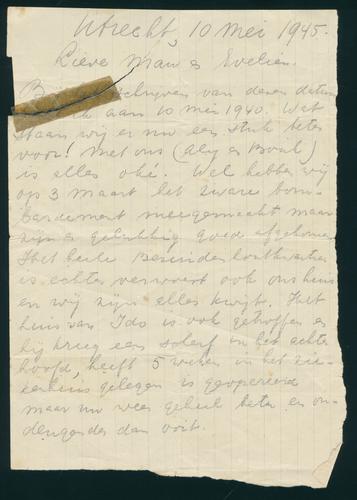 Utrecht, 10 Mei 1945.
Lieve Man en Evelien.
Bij schrijven van deren datum
ik aan 10 mei 1940. Wat
staan wij er nu een stuk beter
voor! Met ons (Aly en Boul)
is alles oké. Wel hebben wij
op 3 maart het zware bom-
bardement meegemaakt maar
zijn er gelukkig goed afgekomen
Het heele
is echter verwoest ook ons huis
en wij zijn alles kwijt. Het
huis van Ido is ook getroffen en
hij kreeg een scherf in het achter
hoofd, heeft 5 weken in het zie-
kenhuis gelegen is geopereerd
maar nu weer geheel beter en on-
deugender dan ooit.